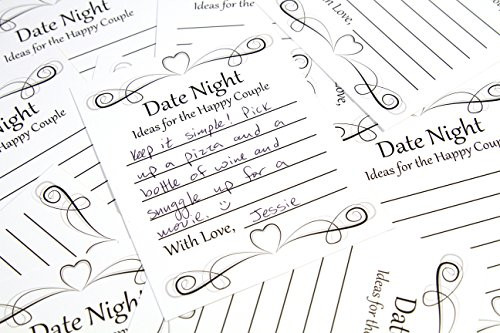 Date Night
Ideas for the Happy Couple
Keep it simple! Pick
up a pizza and a
bottle of wine and
snuggle up for a
movie. ☺
With Love, Jessie
Date Night
Ideas for the Happy Couple
Date Night
Ideas for the Happy Couple
With Love,
Date Night
Ideas for the Happy Couple
Date Night
Date Night
Ideas for the